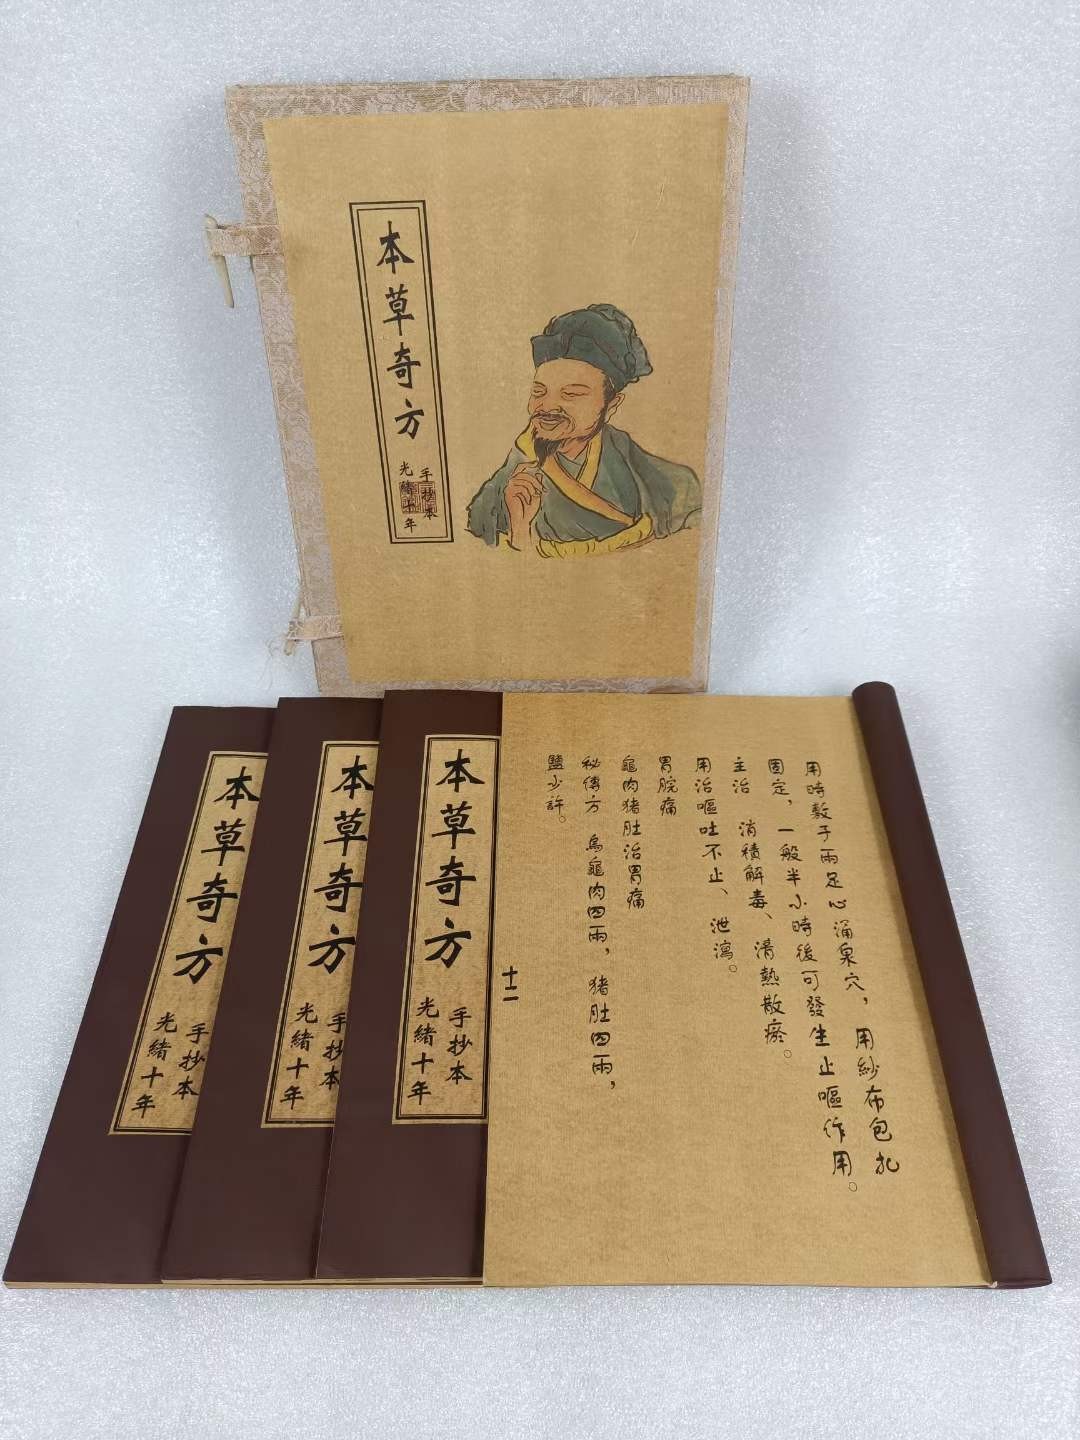 本草奇方
手抄本
光緒十年
本草奇方
手抄本
光緒十年
本草奇方
手抄本
光緒十年
本草奇方
手抄本
光緒十年
用時敷于兩足心涌泉穴，用紗布包扎
固定，一般半小時後可發生止嘔作用。
主治 消積解毒、清熱散瘀。
用治嘔吐不止、泄瀉。
胃脘痛
龜肉猪肚治胃痛
秘傳方 烏龜肉四兩，猪肚四兩，
鹽少許。
十二